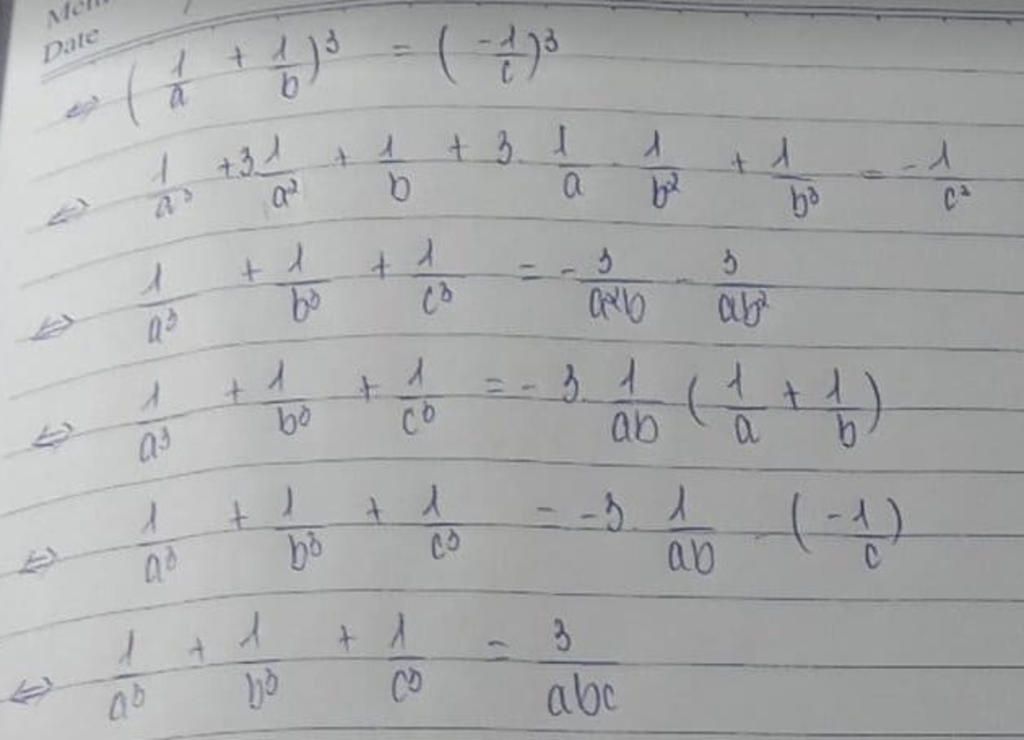 Date
⇔ (1/a + 1/b)³ = (-1/c)³
⇔ 1/a³ + 3 1/a² + 1/b + 3 . 1/a . 1/b² + 1/b³ = -1/c³
⇔ 1/a³ + 1/b³ + 1/c³ = - 3/a²b - 3/ab²
⇔ 1/a³ + 1/b³ + 1/c³ = - 3 . 1/ab (1/a + 1/b)
⇔ 1/a³ + 1/b³ + 1/c³ = -3 . 1/ab . (-1/c)
⇔ 1/a³ + 1/b³ + 1/c³ = 3/abc